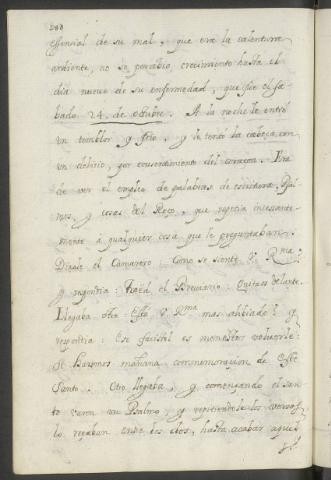 288
essencial de su mal, que era la calentura
ardiente, no se percibio, crecimiento hasta el
dia nueve de su enfermedad, que fue el Sa-
bado 24. de octubre. A la noche le entró
un temblor, y frio, y le tomó la cabeza con
un delirio, por consentimiento del corazon. Era
de ver el empleo de palabras de escritura, Psal-
mos, y cosas del Rezo, que repetia incessante-
mente à qualquier cosa que le preguntaban.
Diziale el Camarero: Como se siente V. Rma
y respondia: Traed el Breviario: Quitaos delante.
Llegaba otro Está V. Rma mas aliviado? y
respondia: Ese facistol es menester volverle:
Si Haremos mañana commemoracion de este
Santo. Otro llegaba, y comenzando el san-
to varon un Psalmo, y repitiendole los versos,
lo rezaban entre los dos, hasta acabar aquel